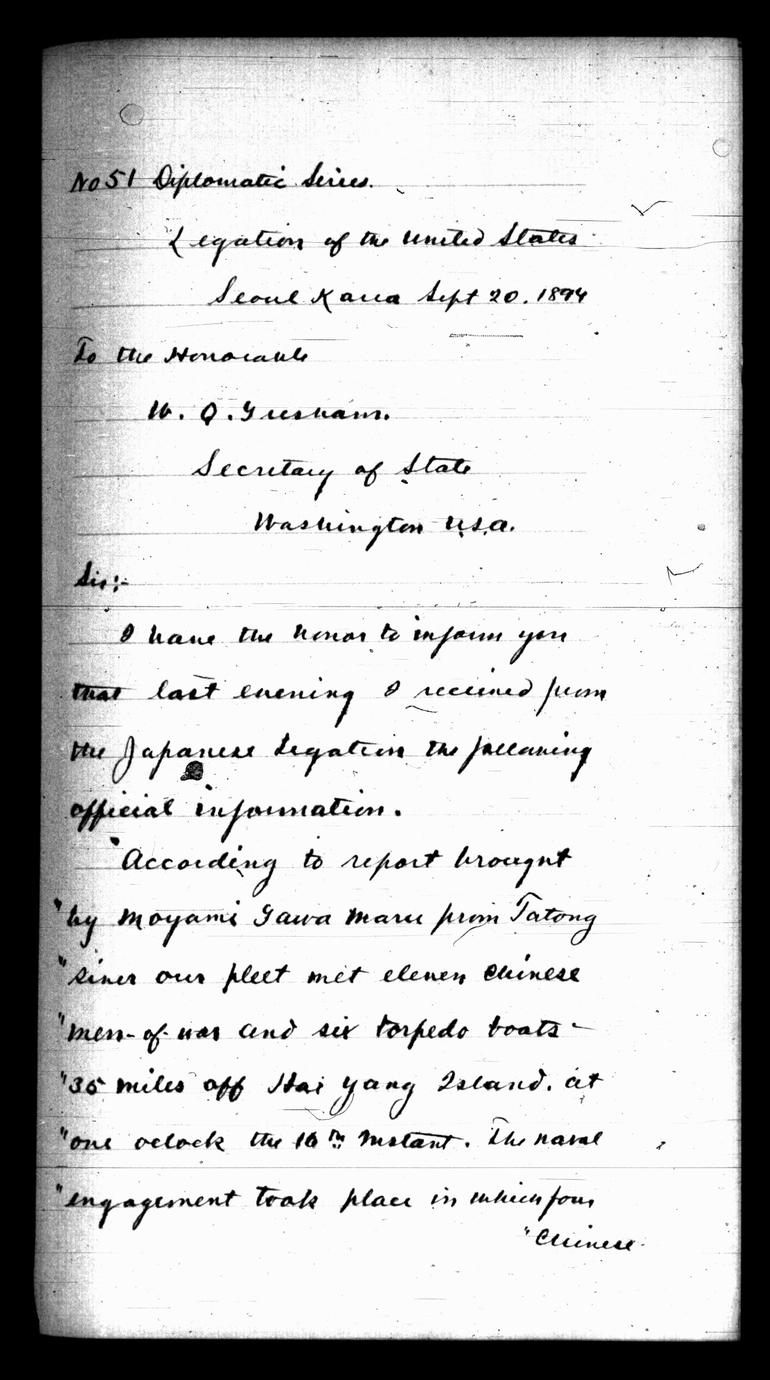 No 51 Diplomatic Series.
Legation of the United States
Seoul Korea Sept 20. 1894
To the Honorable
W. Q. Gresham.
Secretary of State
Washington U.S.A.
Sir:-
I have the honor to inform you
that last evening I received from
the Japanese Legation the following
official information.
"According to report brought
"by Moyami Gawa Maru from Tatong
"River our fleet met eleven Chinese
"men-of-war and six torpedo boats-
"35 miles off Hai Yang Island. at
"one oclock the 16th Instant. The naval
"engagement took place in which four
"Chinese